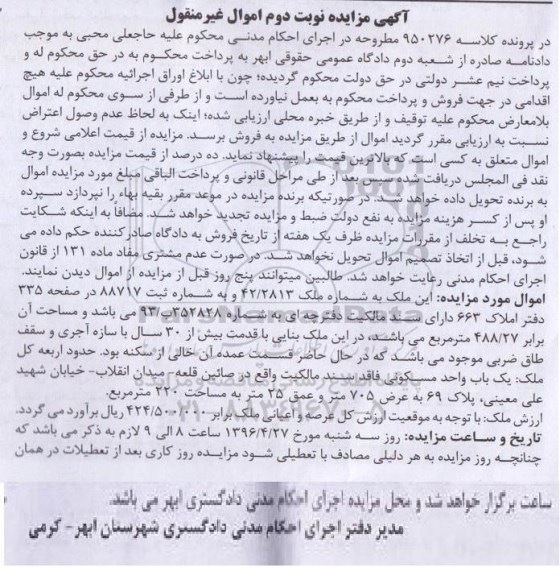 آگهی مزایده نوبت دوم اموال غیرمنقول
در پرونده کلاسه ۹۵۰۲۷۶ مطروحه در اجرای احکام مدنی محکوم علیه حاجعلی محبی به موجب
دادنامه صادره از شعبه دوم دادگاه عمومی حقوقی ابهر به پرداخت محکوم به در حق محکوم له و
پرداخت نیم عشر دولتی در حق دولت محکوم گردیده؛ چون با ابلاغ اوراق اجرائیه محکوم علیه هیچ
اقدامی در جهت فروش و پرداخت محکوم به بعمل نیاورده است و از طرفی از سوی محکوم له اموال
بلامعارض محکوم علیه توقیف و از طریق خبره محلی ارزیابی شده؛ اینک به لحاظ عدم وصول اعتراض
نسبت به ارزیابی مقرر گردید اموال از طریق مزایده به فروش برسد. مزایده از قیمت اعلامی شروع و
اموال متعلق به کسی است که بالاترین قیمت را پیشنهاد نماید. ده درصد از قیمت مزایده بصورت وجه
نقد فی المجلس دریافت شده سپس بعد از طی مراحل قانونی و پرداخت الباقی مبلغ مورد مزایده اموال
به برنده تحویل داده خواهد شد. در صورتیکه برنده مزایده در موعد مقرر بقیه بهاء را نپردازد سپرده
او پس از کسر هزینه مزایده به نفع دولت ضبط و مزایده تجدید خواهد شد. مضافاً به اینکه شکایت
راجع به تخلف از مقررات مزایده ظرف یک هفته از تاریخ فروش به دادگاه صادرکننده حکم داده می
شود، قبل از اتخاذ تصمیم اموال تحویل نخواهد شد. در صورت عدم مشتری مفاد ماده ۱۳۱ از قانون
اجرای احکام مدنی رعایت خواهد شد. طالبین میتوانند پنج روز قبل از مزایده از اموال دیدن نمایند.
اموال مورد مزایده: این ملک به شماره ملک ۴۲/۲۸۱۳ و به شماره ثبت ۸۸۷۱۷ در صفحه ۳۳۵
دفتر املاک ۶۶۳ دارای سند مالکیت دفترچه ای به شماره ۳۵۲۸۲۸ب۹۳ می باشد و مساحت آن
برابر ۴۸۸/۲۷ مترمربع می باشد، در این ملک بنایی با قدمت بیش از ۳۰ سال با سازه آجری و سقف
طاق ضربی موجود می باشد که در حال حاضر قسمت عمده آن خالی از سکنه بود. حدود اربعه کل
ملک: یک باب واحد مسکونی فاقد سند مالکیت واقع در صائین قلعه- میدان انقلاب- خیابان شهید
علی معینی، پلاک ۶۹ به عرض ۷۰۵ متر و عمق ۲۵ متر به مساحت ۲۲۰ مترمربع.
ارزش ملک: با توجه به موقعیت ارزش کل عرصه و اعیانی ملک برابر ۴۲۴/۵۰۰/۲۱۰ ریال برآورد می گردد.
تاریخ و ساعت مزایده: روز سه شنبه مورخ ۱۳۹۶/۴/۲۷ ساعت ۸ الی ۹ لازم به ذکر می باشد که
چنانچه روز مزایده به هر دلیلی مصادف با تعطیلی شود مزایده روز کاری بعد از تعطیلات در همان
ساعت برگزار خواهد شد و محل مزایده اجرای احکام مدنی دادگستری ابهر می باشد.
مدیر دفتر اجرای احکام مدنی دادگستری شهرستان ابهر- کرمی